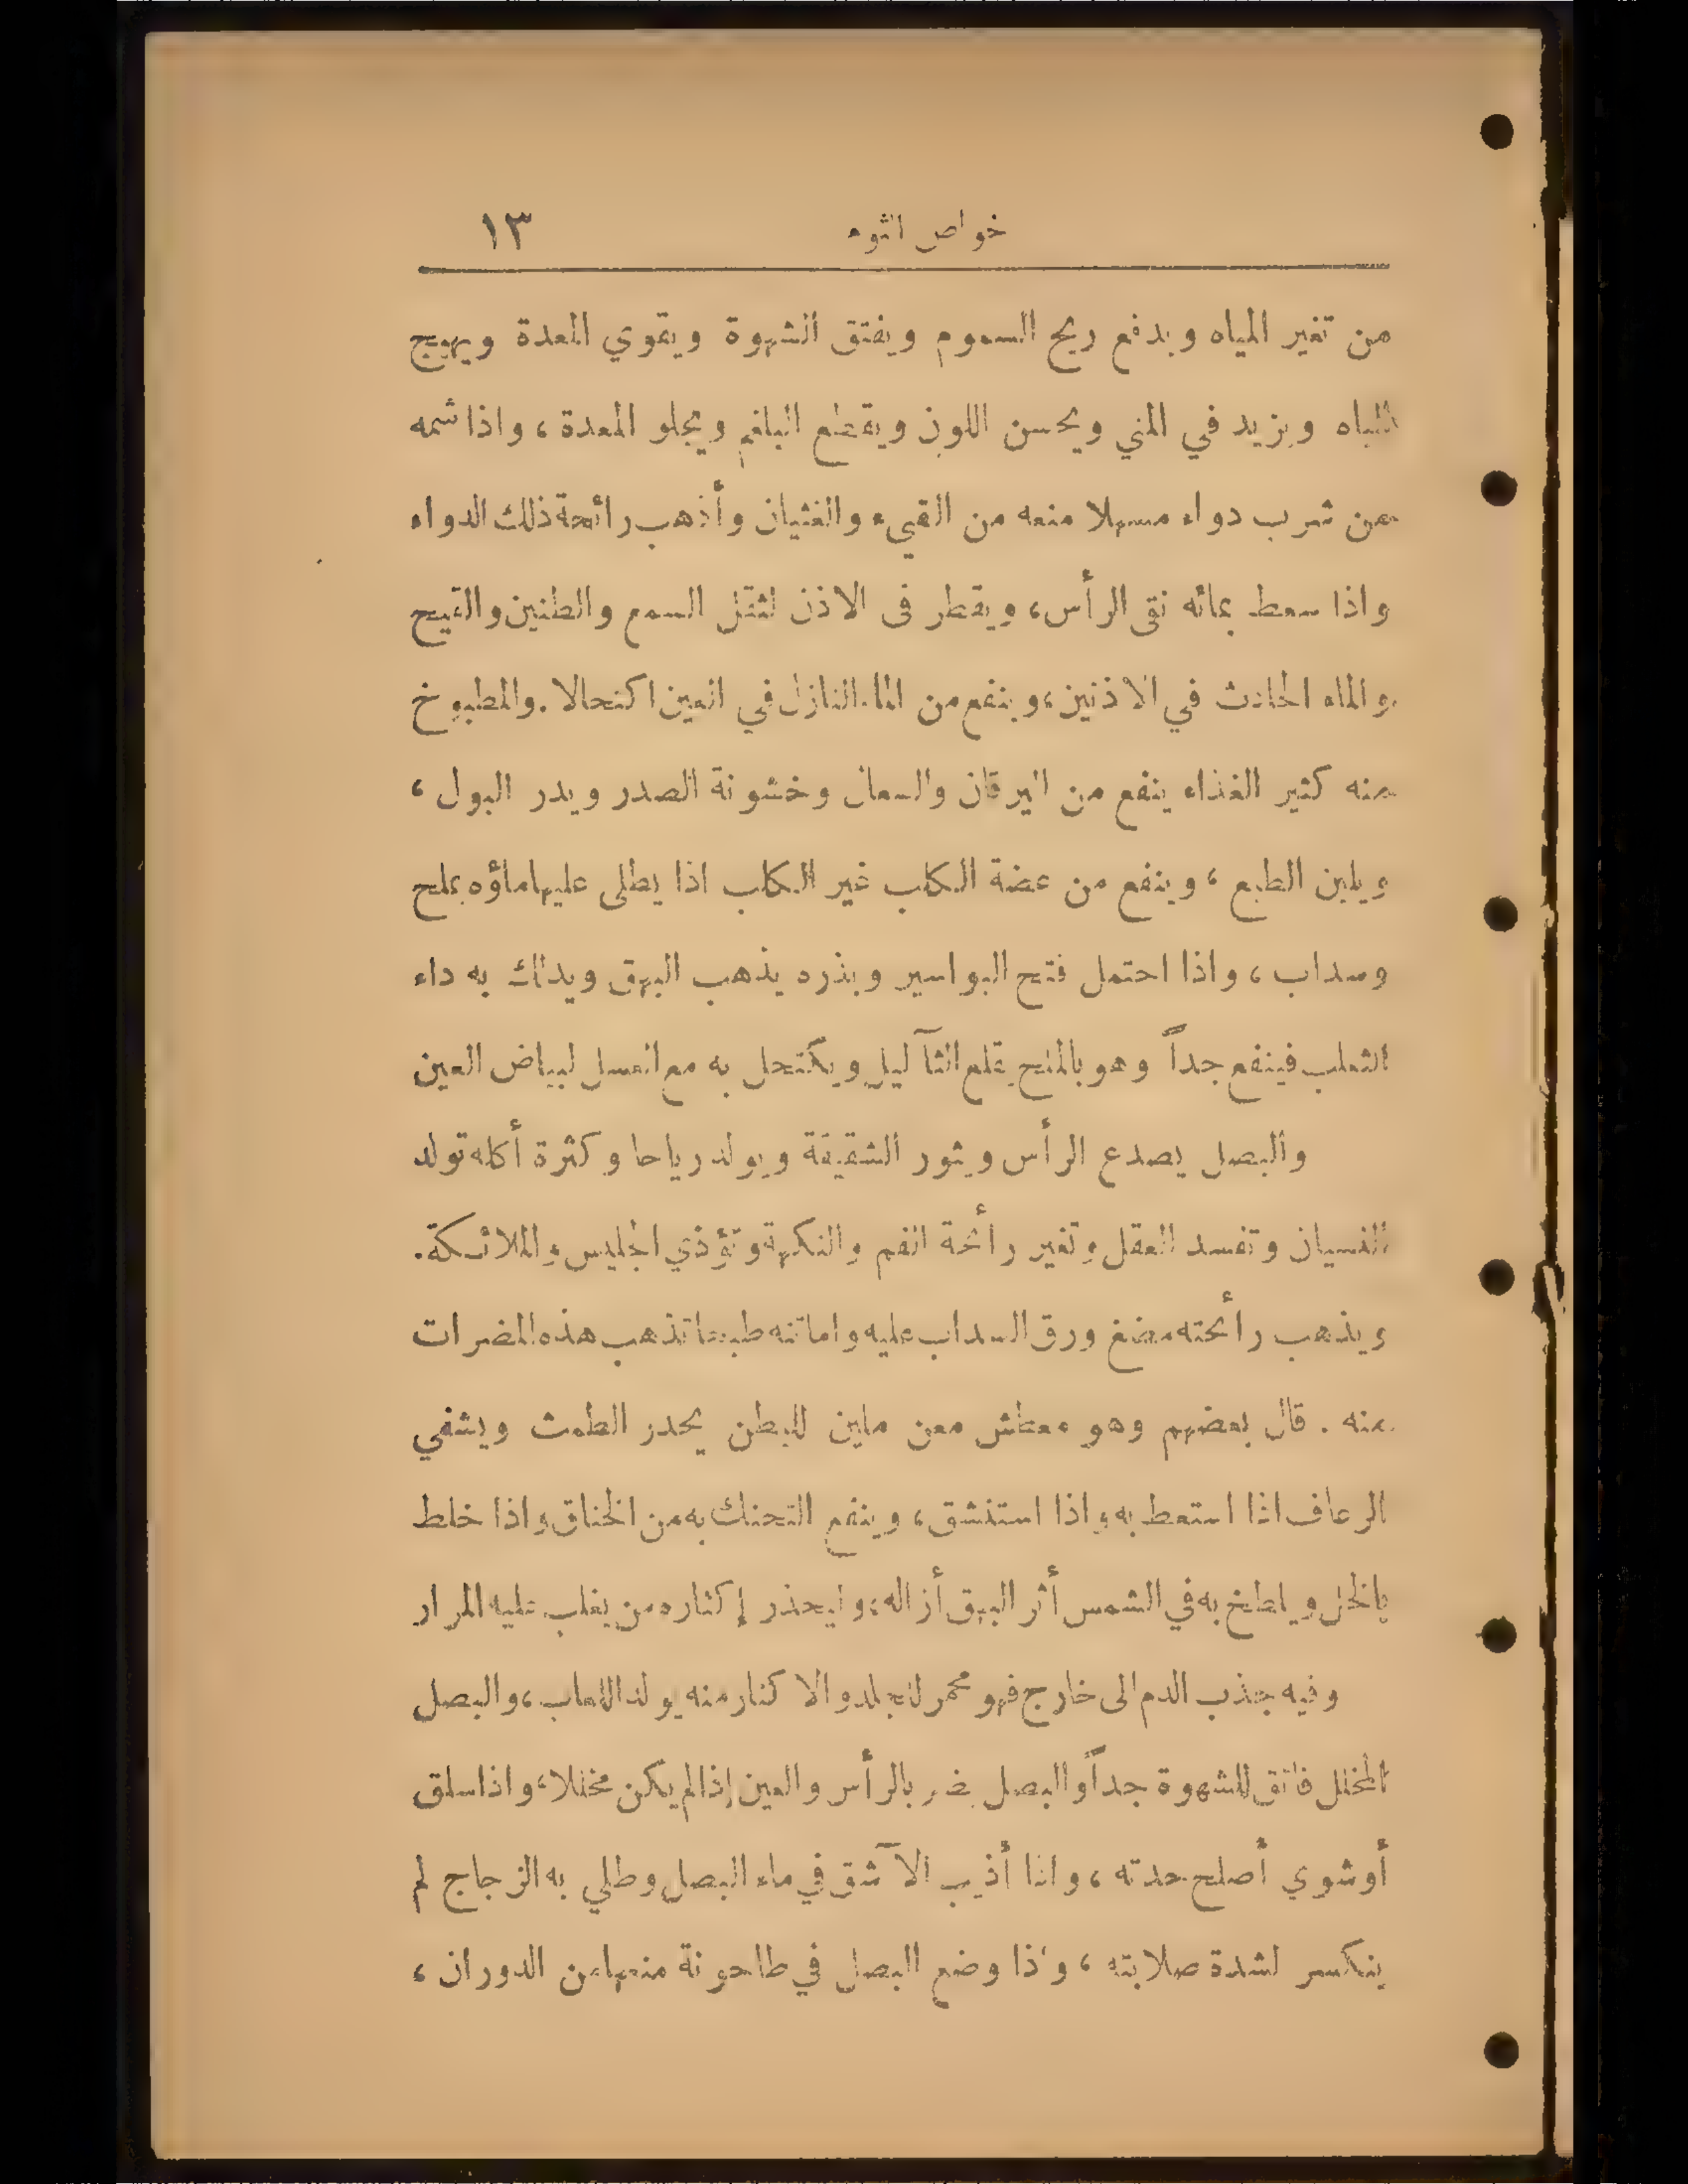 خواص الثوم ١٣
من تغير المياه ويدفع ريح السموم ويفتق الشهوة ويقوي المعدة ويهيج
الباه ويزيد في المني ويحسن اللون ويقطع البلغم ويجلو المعدة ، واذا شمه
من شرب دواء مسهلا منعه من القيء والغثيان وأذهب رائحة ذلك الدواء
واذا سعط بمائه نقى الرأس ، ويقطر فى الاذن لثقل السمع والطنين والقيح
والماء الحادث في الاذنين ، وينفع من الماء النازل في العين اكتحالا . والمطبوخ
منه كثير الغذاء ينفع من اليرقان والسعال وخشونة الصدر ويدر البول ،
ويلين الطبع ، وينفع من عضة الكلب غير الكلب اذا يطلى عليها ماؤه بملح
وسداب ، واذا احتمل فتح البواسير وبذره يذهب البهق ويدلك به داء
الثعلب فينفع جداً وهو بالملح يقلع الثآليل ويكتحل به مع العسل لبياض العين
والبصل يصدع الرأس ويثور الشقيقة ويولد رياحا وكثرة أكله تولد
النسيان وتفسد العقل وتغير رائحة الفم والنكهة وتؤذي الجليس والملائكة .
ويذهب رائحته مضغ ورق السداب عليه واماتته طبخا تذهب هذه المضرات
منه . قال بعضهم وهو معطش معن ملين للبطن يحدر الطمث ويشفي
الرعاف اذا استعط به واذا استنشق ، وينفع التحنك به من الخناق واذا خلط
بالخل ويلطخ به في الشمس أثر البهق أزاله ، وليحذر إكثاره من يغلب عليه المرار
وفيه جذب الدم الى خارج فهو محمر للجلد والاكثار منه يولد اللعاب ، والبصل
المخلل فاتق للشهوة جداً والبصل يضر بالرأس والعين إذا لم يكن مخللا ، واذا سلق
أو شوي أصلح حدته ، واذا أذيب الآشق في ماء البصل وطلي به الزجاج لم
ينكسر لشدة صلابته ، واذا وضع البصل في طاحونة منعها من الدوران ،